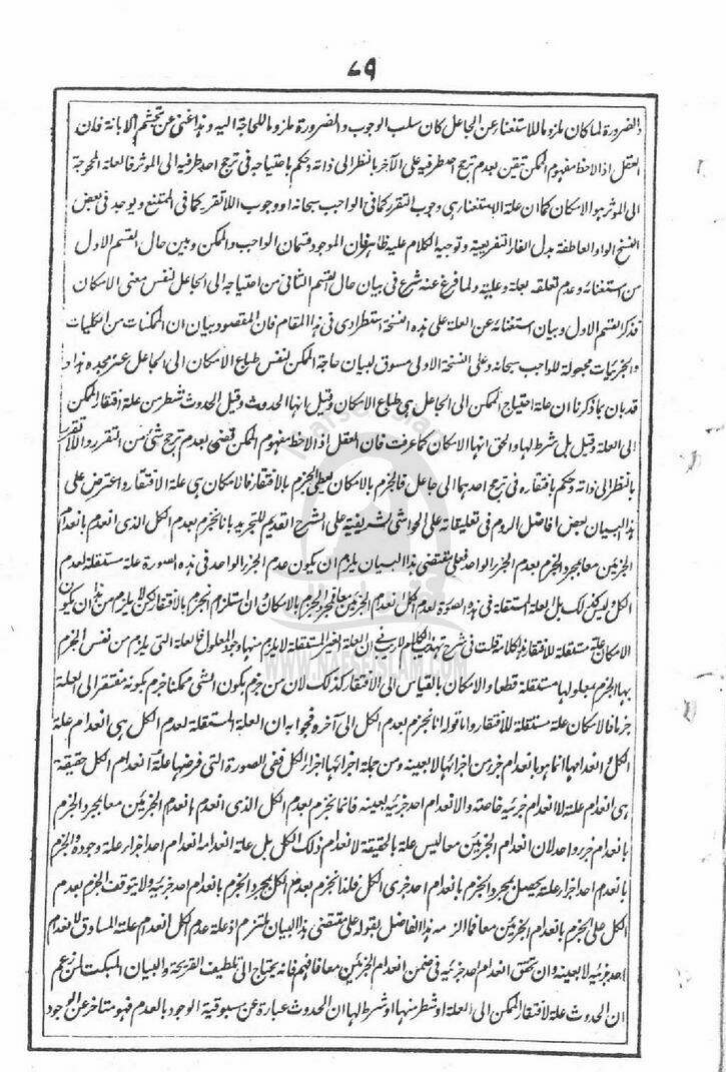 ٧٩
والضرورة لما كان ملزوما للاستغناء عن الجاعل كان سلب الوجوب والضرورة ملزوما للحاجة اليه وهذا غنى عن تجشم الابانة فان
العقل اذا لاحظ مفهوم الممكن تيقن بعدم ترجح احد طرفيه على الآخر بالنظر الى ذاته وحكم باحتياجه فى ترجح احد طرفيه الى الموثر فالعلة المحوجة
الى الموثر هو الامكان كما ان علة الاستغناء هى وجوب التقرر كما فى الواجب سبحانه او وجوب اللاتقرر كما فى الممتنع ويوجد فى بعض
النسخ الواو العاطفة بدل الفاء التفريعية وتوجيه الكلام عليه ظاهر فان الموجود قسمان الواجب والممكن وبين حال القسم الاول
من استغنائه وعدم تعلقه بعلة وعلية ولما فرغ عنه شرع فى بيان حال القسم الثانى من احتياجه الى الجاعل لنفس معنى الامكان
فذكر القسم الاول وبيان استغنائه عن العلة على هذه النسخة استطرادى فى هذا المقام فان المقصود بيان ان الممكنات من الكليات
والجزئيات مجعولة للواجب سبحانه وعلى النسخة الاولى مسوق لبيان حاجة الممكن لنفس طباع الامكان الى الجاعل عز مجده هذا و
قد بان بما ذكرنا ان علة احتياج الممكن الى الجاعل هى طباع الامكان وقيل انها الحدوث وقيل الحدوث شطر من علة افتقار الممكن
الى العلة وقيل بل شرط لها والحق انها الامكان كما عرفت فان العقل اذا لاحظ مفهوم الممكن قضى بعدم ترجح شئ من التقرر واللاتقرر
بالنظر الى ذاته وحكم بافتقاره فى ترجح احدهما الى جاعل فالجزم بالامكان يعطى الجزم بالافتقار فالامكان هى علة الافتقار واعترض على
هذا البيان بعض افاضل الروم فى تعليقاته على الحواشى الشريفية على الشرح القديم للتجريد بانا نجزم بعدم الكل الذى انعدم بانعدام
الجزئين معا بمجرد الجزم بعدم الجزء الواحد فعلى مقتضى هذا البيان يلزم ان يكون عدم الجزء الواحد فى هذه الصورة علة مستقلة لعدم
الكل وليس كذلك بل العلة المستقلة فى هذه الصورة لعدم الكل انعدام الجزئين معا فمجرد الجزم بالامكان وان استلزم الجزم بالافتقار لكن لا يلزم من هذا ان يكون
الامكان علة مستقلة للافتقار هذا كلامه قلت فى شرح تهذيب الكلام لا ريب فى ان العلة الغير المستقلة لا يلزم منها وجود المعلول فالعلة التى يلزم من نفس الجزم
بها الجزم بمعلولها مستقلة قطعا والامكان بالقياس الى الافتقار كذلك لان من جزم بكون الشئ ممكنا جزم بكونه مفتقرا الى العلة
جزما فالامكان علة مستقلة للافتقار واما قوله انا نجزم بعدم الكل الى آخره فجوابه ان العلة المستقلة لعدم الكل هى انعدام علة
الكل وانعدامها انما هو بانعدام جزء من اجزائها لا بعينه ومن جملة اجزائها اجزاء الكل ففى الصورة التى فرضها علة انعدام الكل حقيقة
هى انعدام علته لا انعدام جزئيه خاصة ولا انعدام احد جزئيه بعينه فانما نجزم بعدم الكل الذى انعدم بانعدام الجزئين معا بمجرد الجزم
بانعدام جزء واحد لان انعدام الجزئين معا ليس علة بالحقيقة لانعدام ذلك الكل بل علة انعدامه انعدام احد اجزاء علة وجوده والجزم
بانعدام احد اجزاء علته يحصل بمجرد الجزم بانعدام احد جزئى الكل فلذا نجزم بعدم الكل بمجرد الجزم بانعدام احد جزئيه ولا يتوقف الجزم بعدم
الكل على الجزم بانعدام الجزئين معا فما الزمه هذا الفاضل بقوله على مقتضى هذا البيان ملتزم اذ علة عدم الكل انعدام علة المساوق لانعدام
احد جزئيه لا بعينه وان تحقق انعدام احد جزئيه فى ضمن انعدام الجزئين معا فافهم فانه يحتاج الى تلطيف القريحة والبيان المبكت لمن زعم
ان الحدوث علة لافتقار الممكن الى العلة او شطر منها او شرط لها ان الحدوث عبارة عن مسبوقية الوجود بالعدم فهو متاخر عن الوجود
WWW.NAFSEISLAM.COM